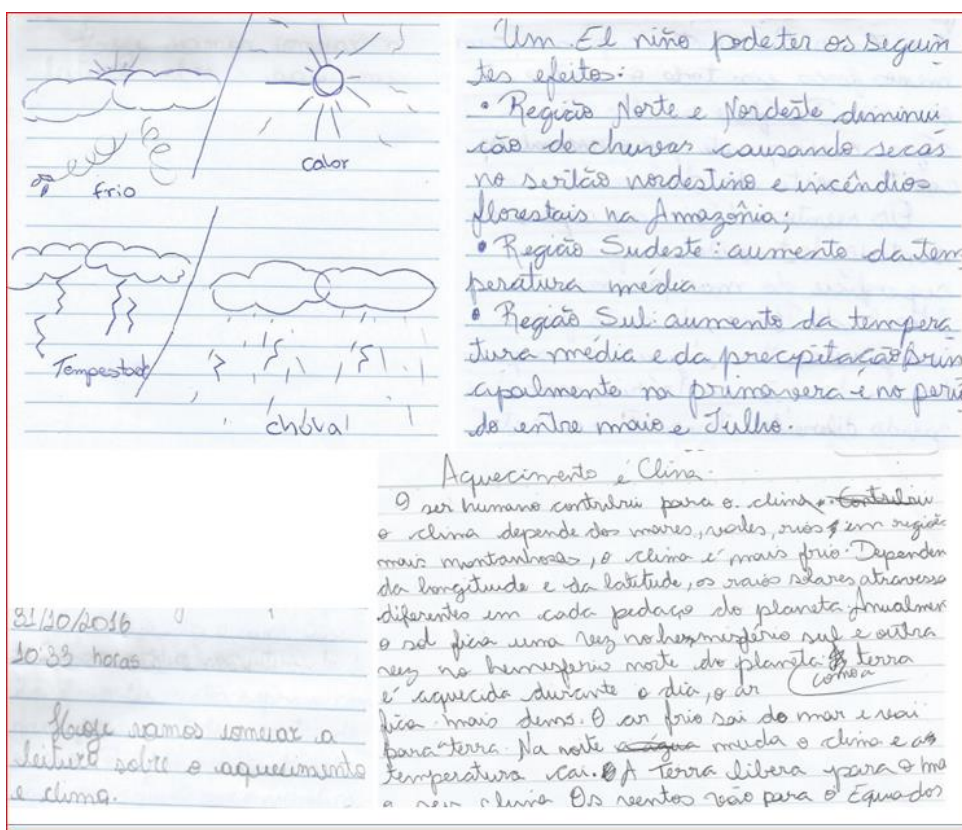 frio
calor
Tempestade
chuva!
Um El niño pode ter os seguin
tes efeitos:
• Região Norte e Nordeste diminui
ção de chuvas causando secas
no sertão nordestino e incêndios
florestais na Amazônia;
• Região Sudeste: aumento da tem
peratura média
• Região Sul: aumento da tempera
tura média e da precipitação prin
cipalmente na primavera e no perío
do entre maio e Julho.
Aquecimento e Clima.
O ser humano contribui para o clima. contribui
o clima depende dos mares, vales, rios, em região
mais montanhosas, o clima é mais frio. Dependen
da longitude e da latitude, os raios solares atravessa
diferentes em cada pedaço do planeta. Anualmen
o sol fica uma vez no hesmisfério sul e outra
vez no hemisferio norte do planeta. terra
como a
é aquecida durante o dia, o ar
fica mais denso. O ar frio sai do mar e vai
para a terra. Na noite muda o clima e as
temperatura cai. A Terra libera para o ma
o seu clima Os ventos vão para o Equador
31/10/2016
10:33 horas
Hoje vamos começar a
leitura sobre o aquecimento
e clima.